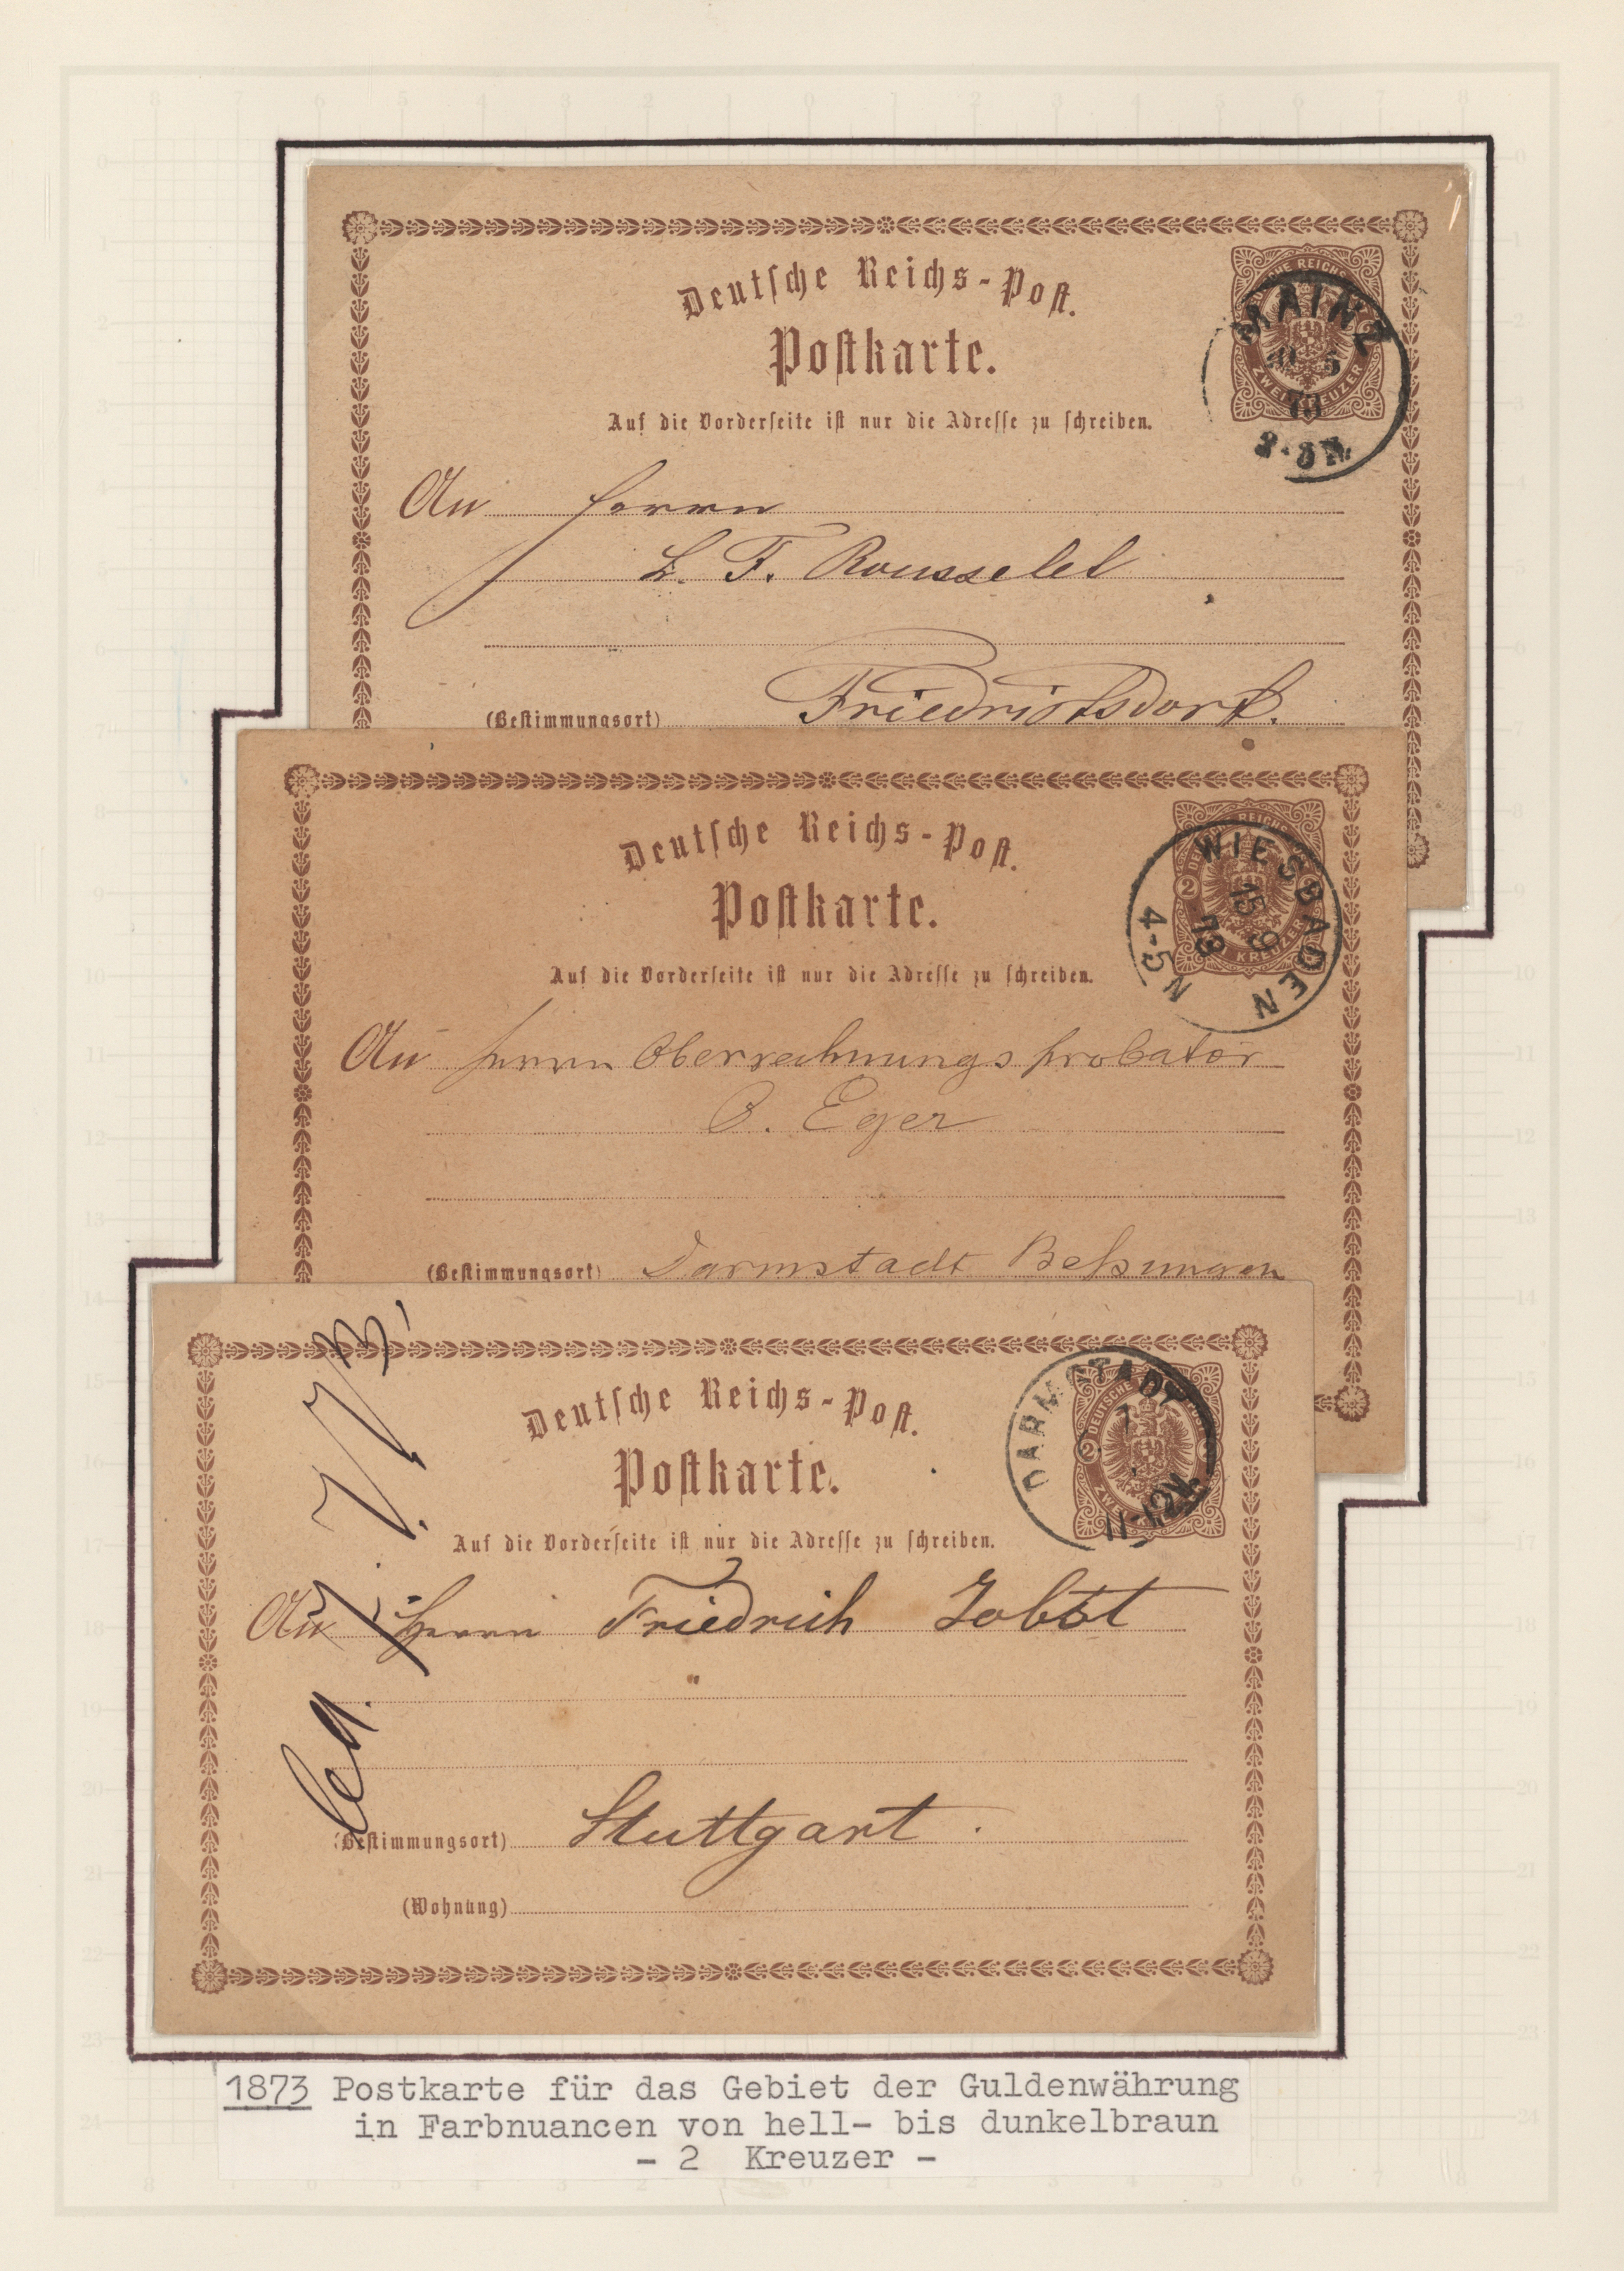 Deutsche Reichs-Post.
Postkarte.
Auf die Vorderseite ist nur die Adresse zu schreiben.
DEUTSCHE REICHS
ZWEI KREUZER
MAINZ
An Herrn
L. F. Rousselet
(Bestimmungsort) Friedrichsdorf.
Deutsche Reichs-Post.
Postkarte.
Auf die Vorderseite ist nur die Adresse zu schreiben.
2
KREUZER
WIESBADEN
15 9
73
4-5 N
An Herrn Oberrechnungsprobator
Eger
(Bestimmungsort) Darmstadt Beßungen
Deutsche Reichs-Post.
Postkarte.
Auf die Vorderseite ist nur die Adresse zu schreiben.
2 DEUTSCHE
DARMSTADT
11-12 N.
An Herrn Friedrich Jobst
(Bestimmungsort) Stuttgart.
(Wohnung)
1873 Postkarte für das Gebiet der Guldenwährung
in Farbnuancen von hell- bis dunkelbraun
- 2 Kreuzer -